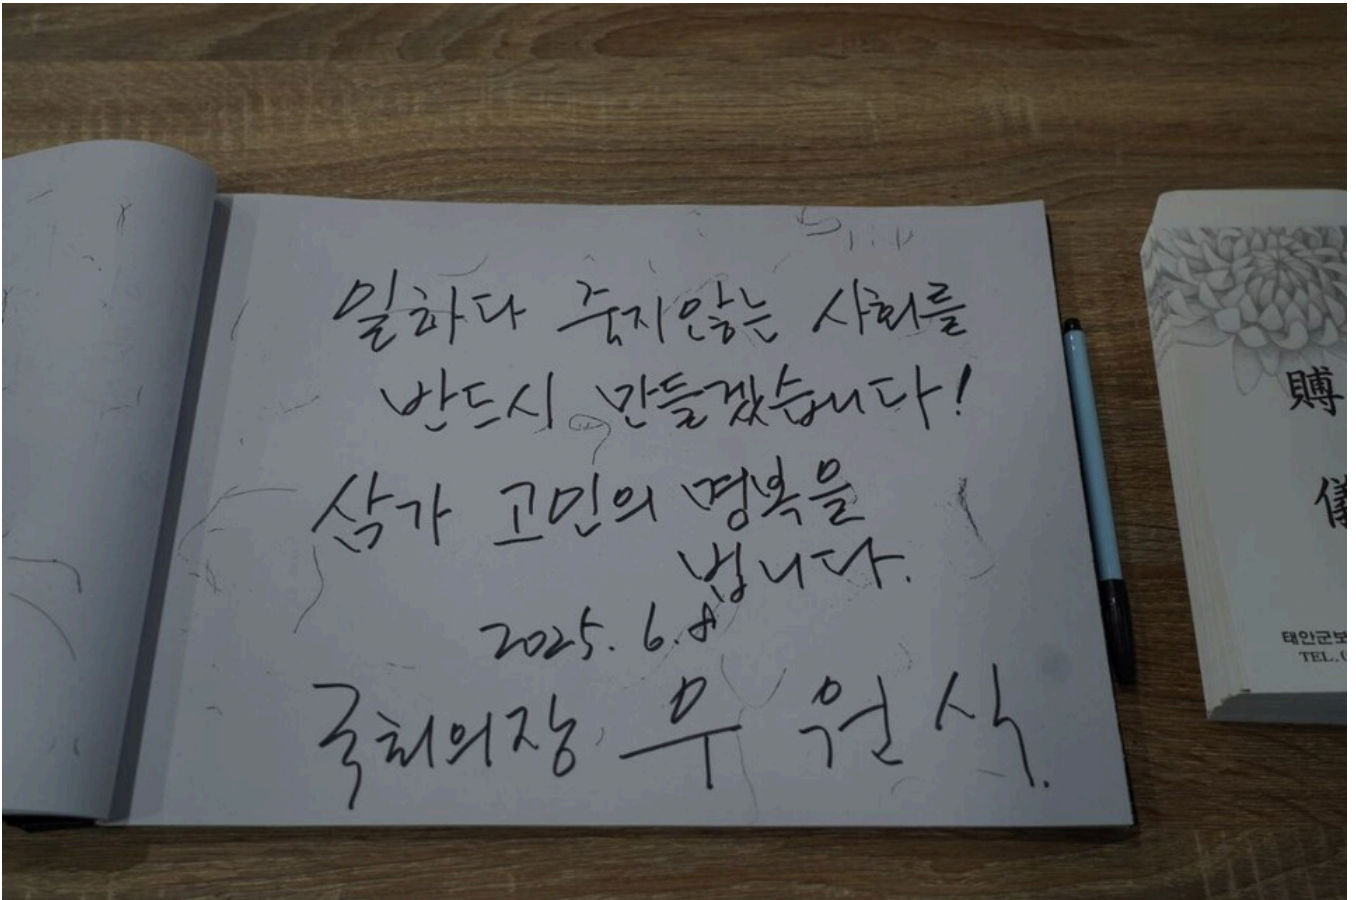 일하다 죽지않는 사회를
반드시 만들겠습니다!
삼가 고인의 명복을
빕니다.
2025. 6. 8
국회의장 우 원 식.
賻
儀
태안군보
TEL.(